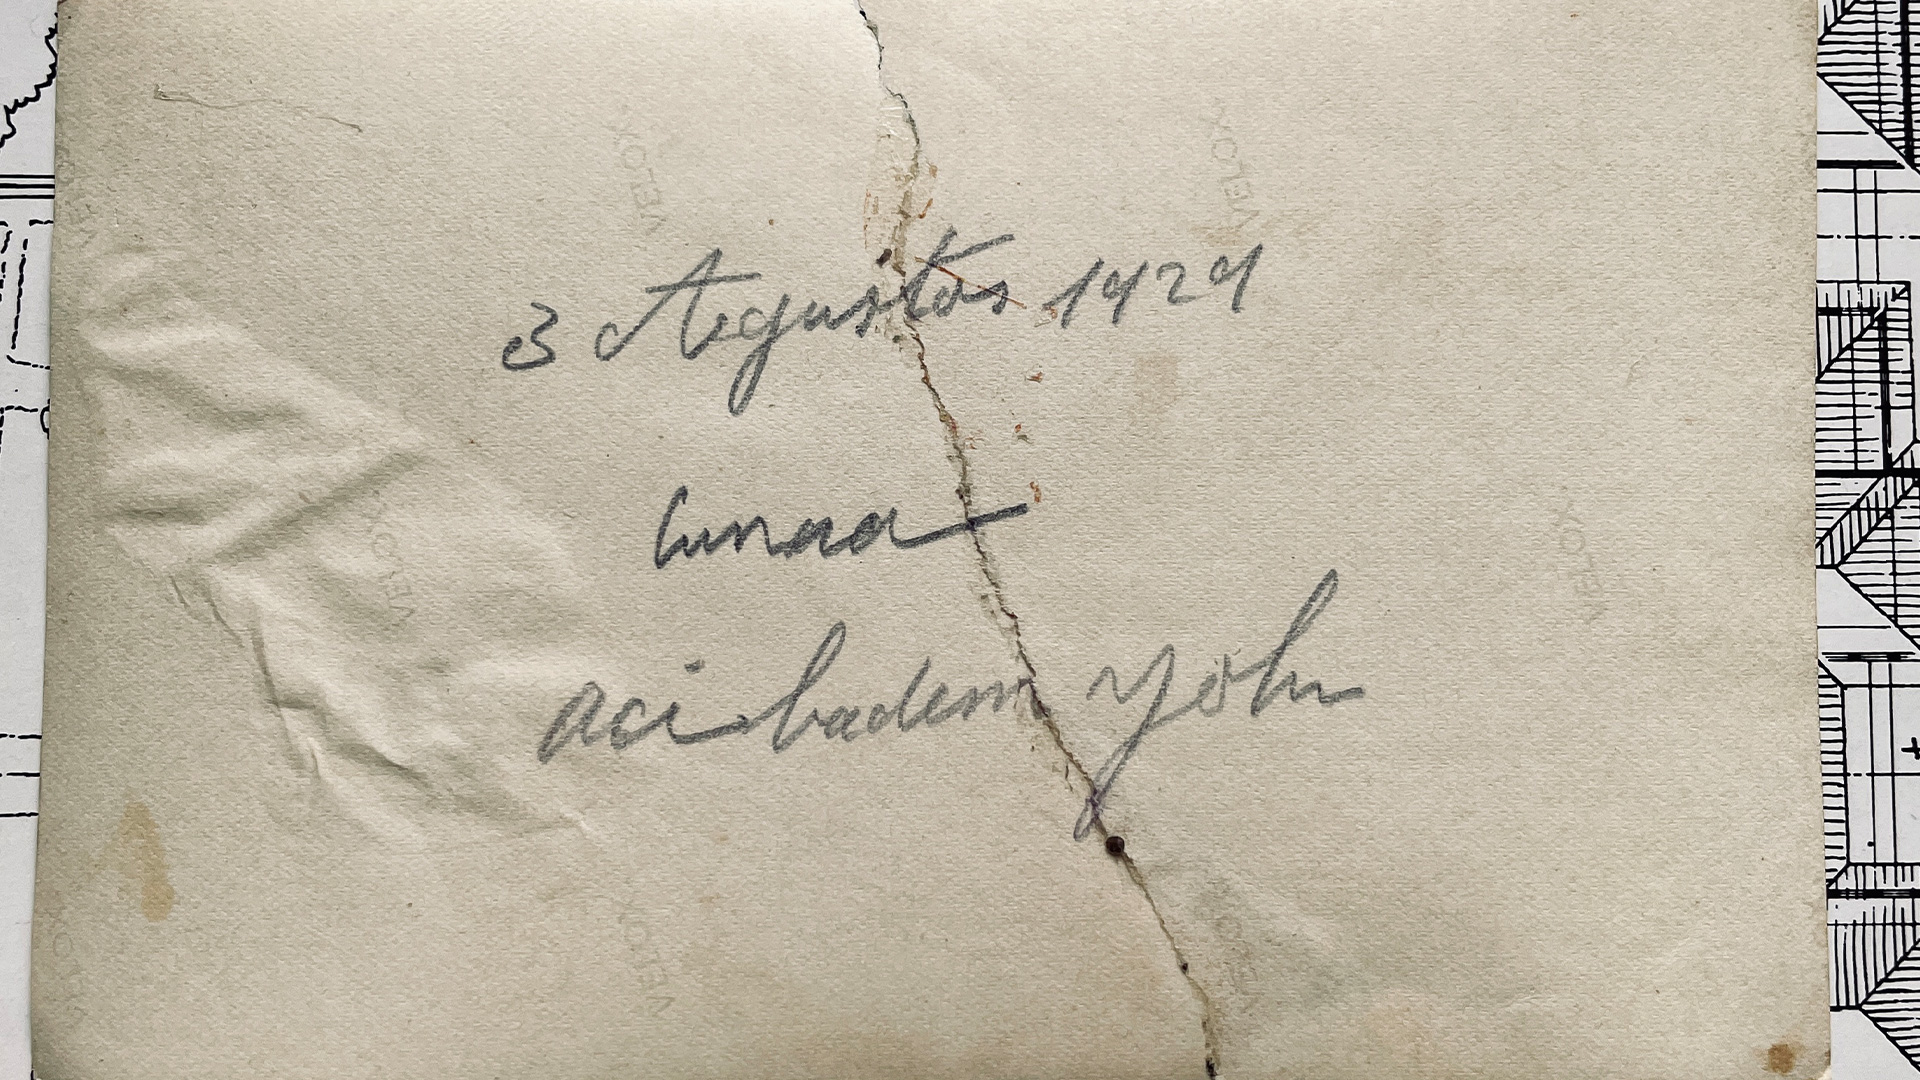 VELOX VELOX VELOX
3 Agustos 1929
acibadem Yolu
VELOX VELOX
VELOX VELOX VELOX